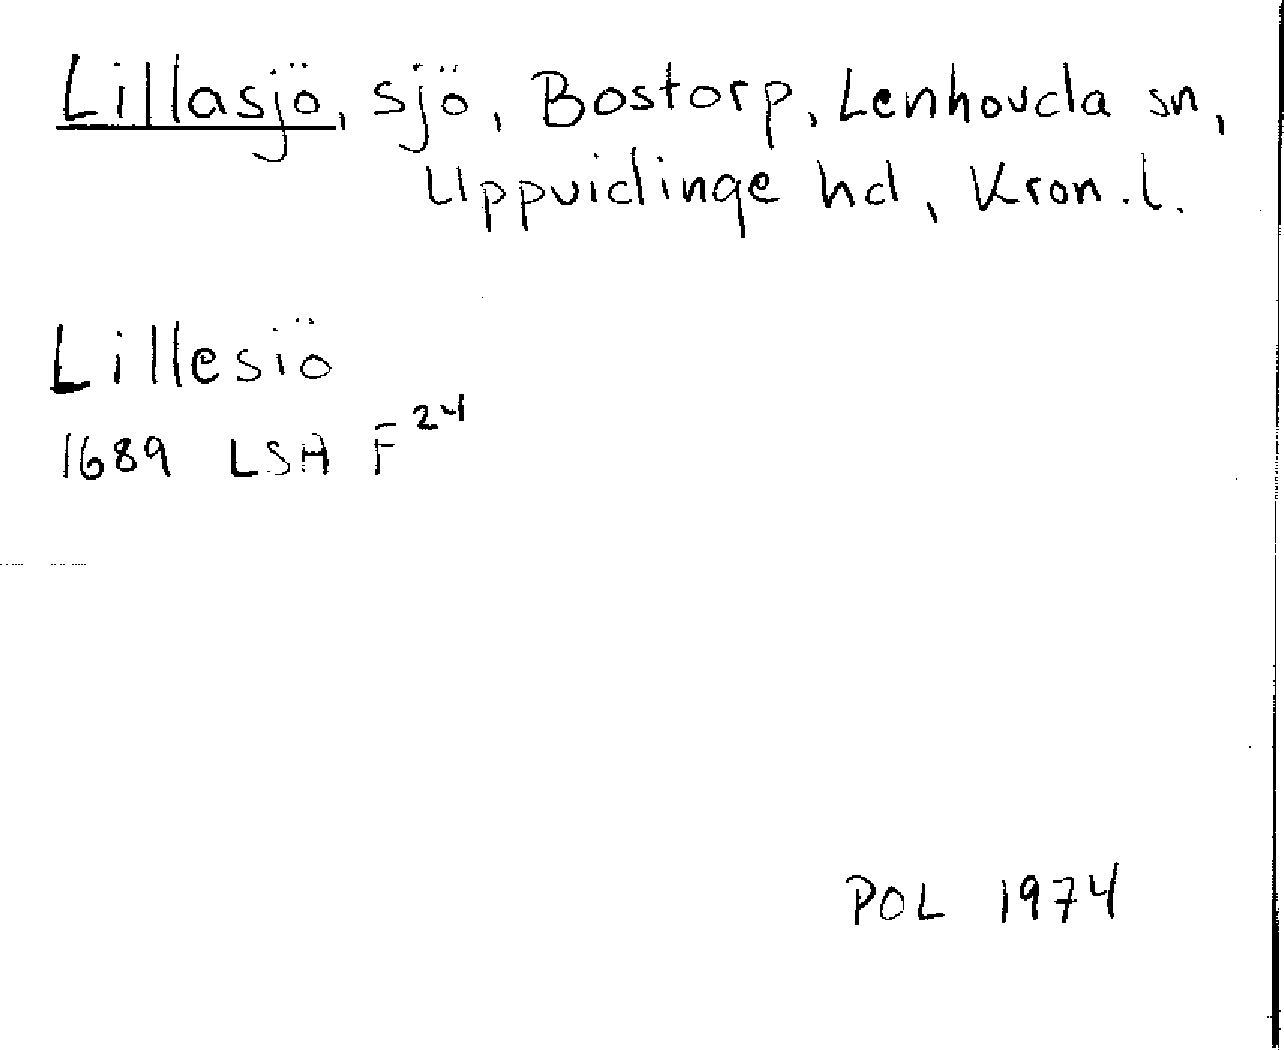 Lillasjö, sjö, Bostorp, Lenhovda sn,
Uppvidinge hd, Kron.l.
Lillesiö
1689 LSA F24
POL 1974